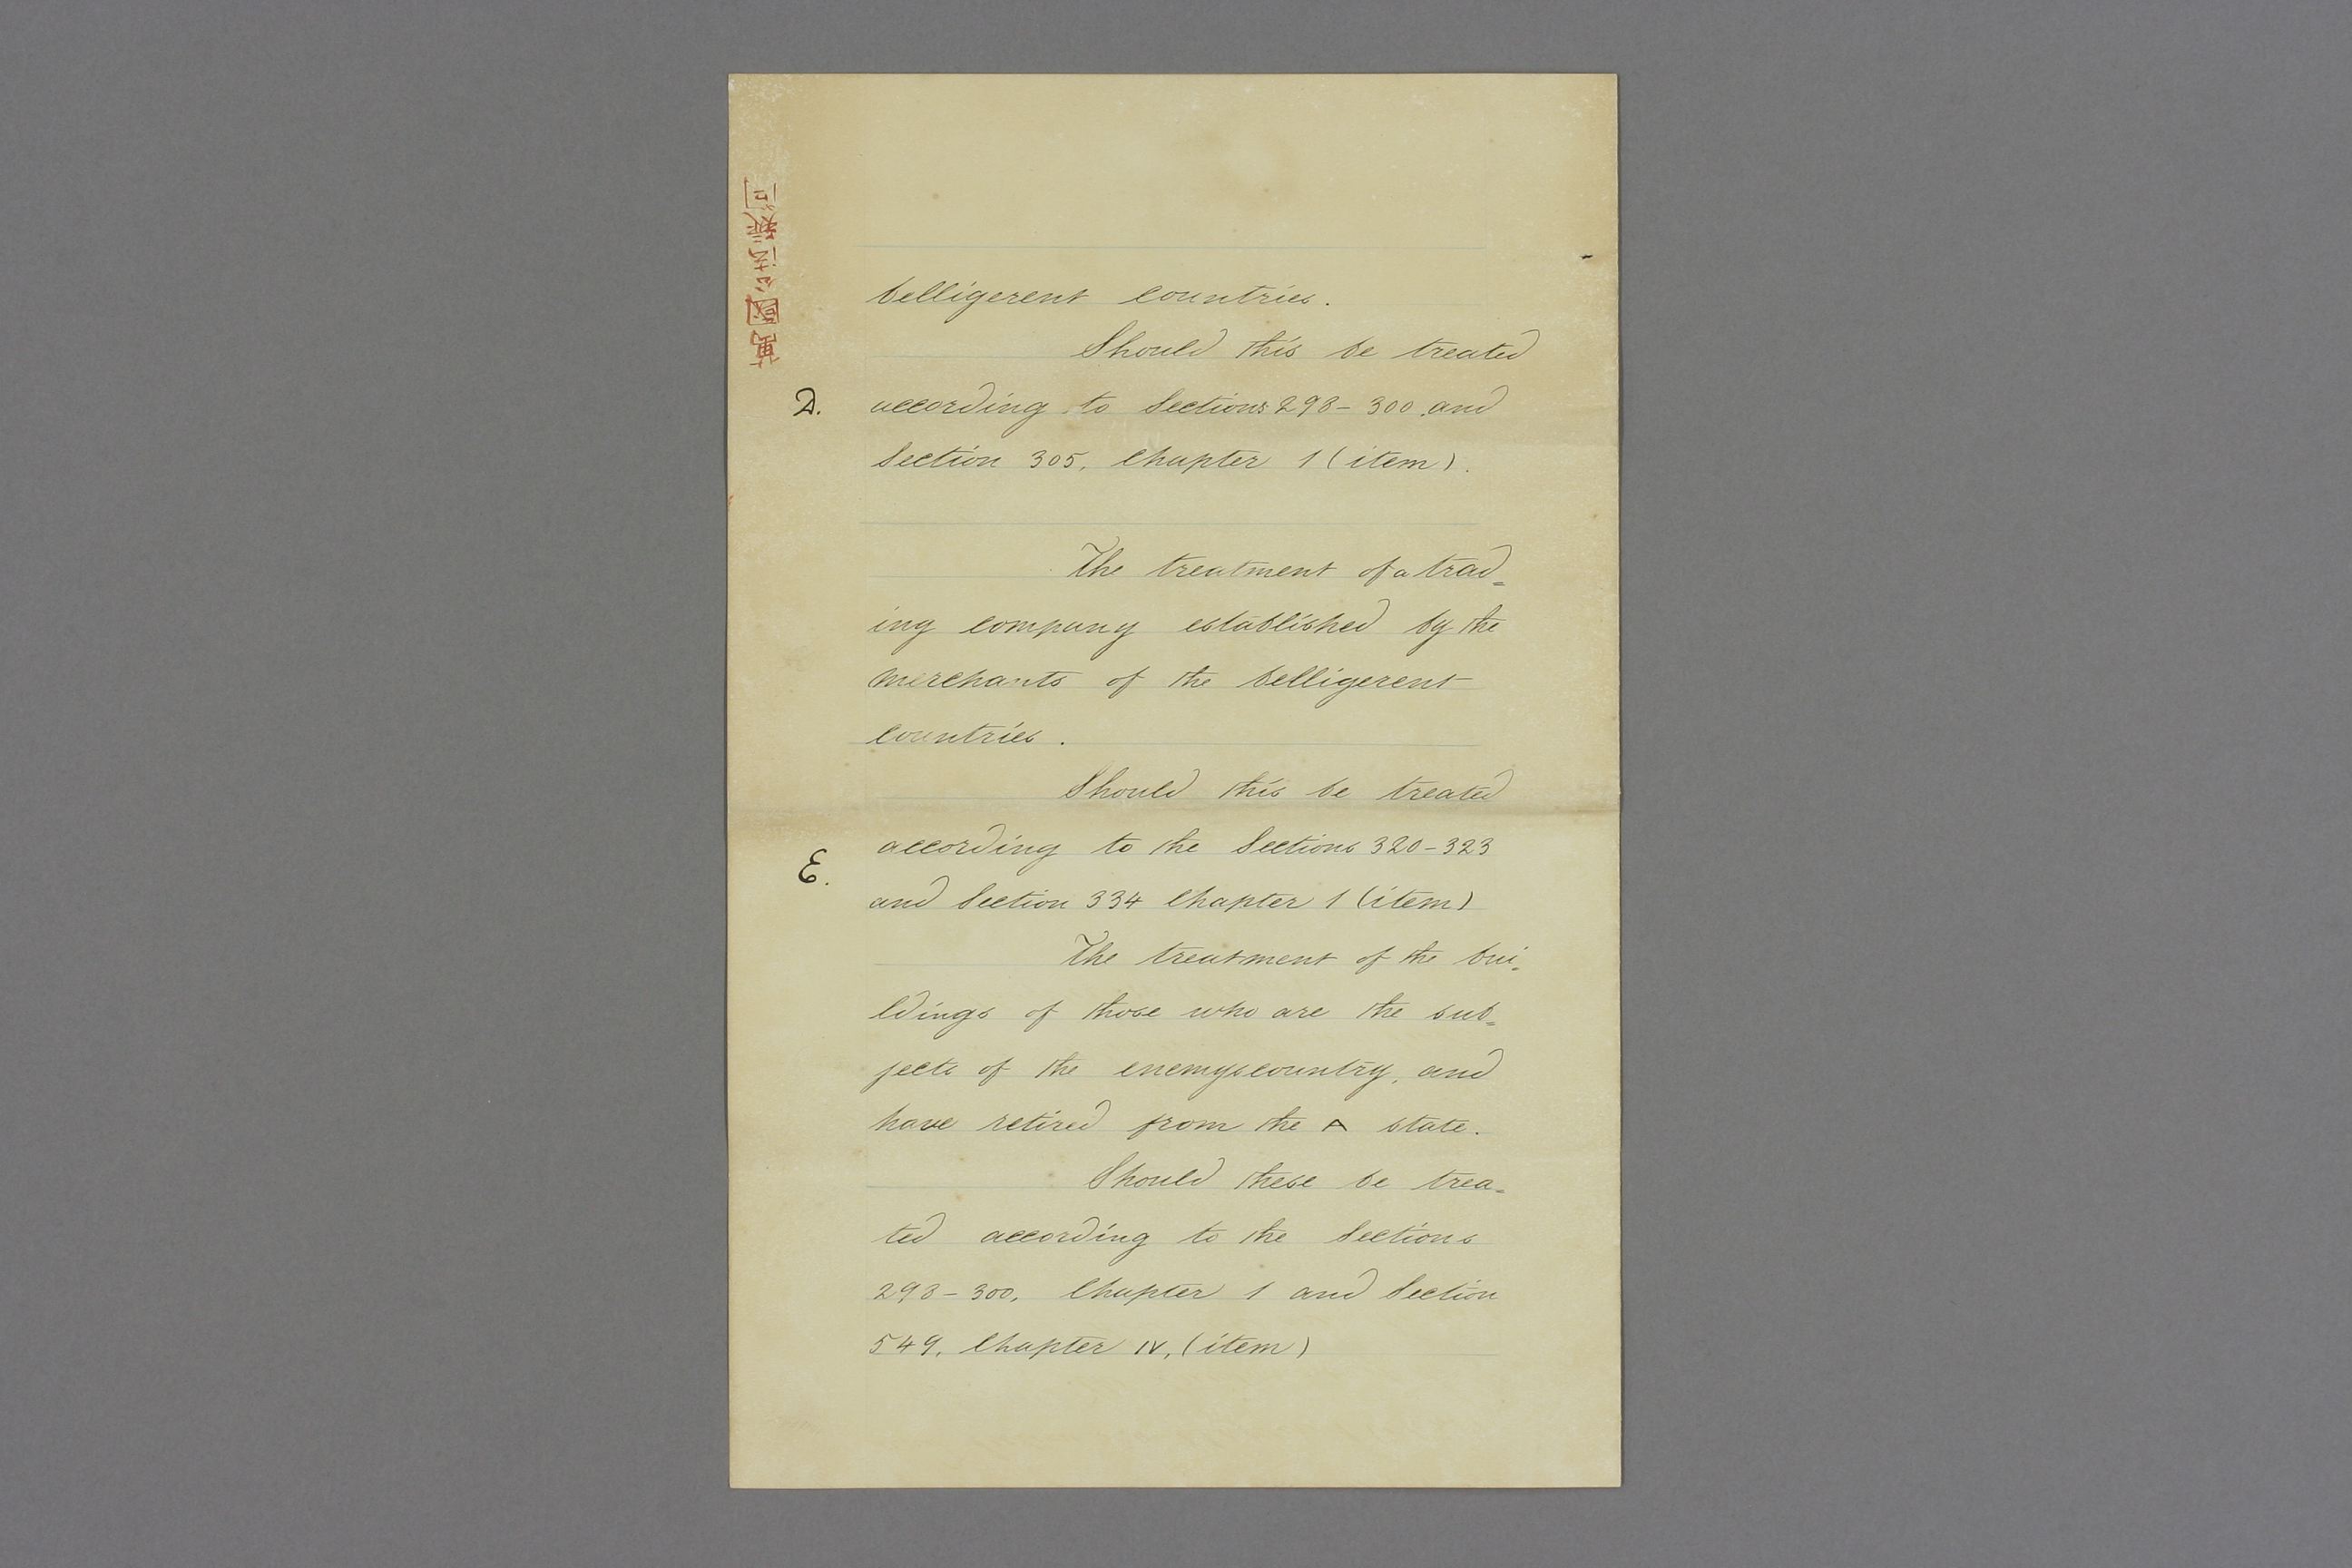 萬國
belligerent countries.
Should this be treated
D. according to Sections 298-300 and
Section 305, Chapter 1 (item).
The treatment of a trad=
ing company established by the
merchants of the belligerent
countries.
Should this be treated
E. according to the Sections 320-323
and Section 334 Chapter 1 (item)
The treatment of the bui=
ldings of those who are the sub=
jects of the enemys country, and
have retired from the A state.
Should these be trea=
ted according to the Sections
298-300, Chapter 1 and Section
549, Chapter IV, (item)